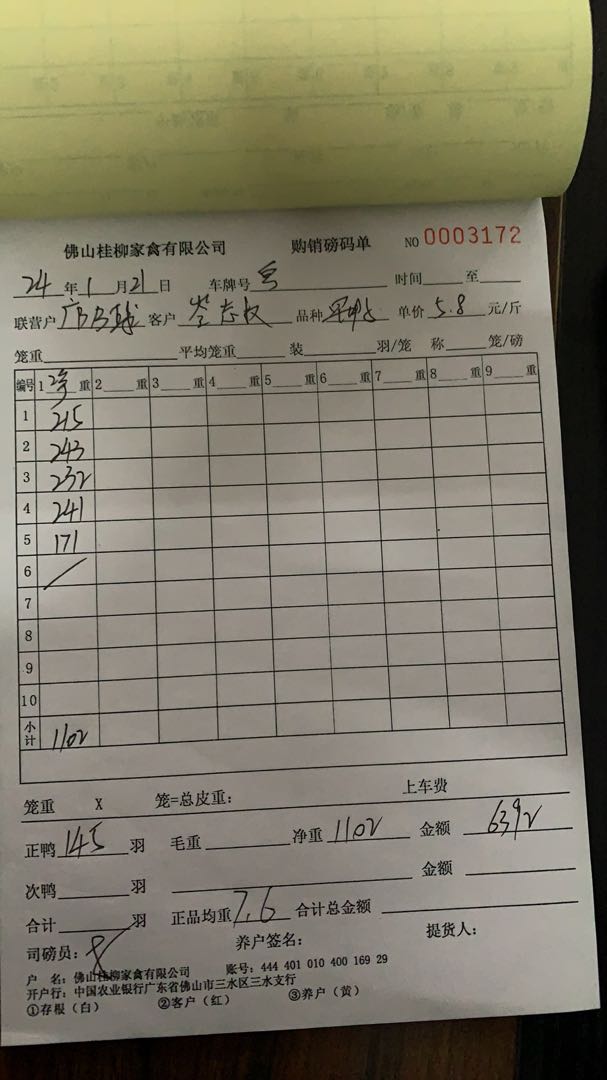 佛山桂柳家禽有限公司 购销磅码单 NO 0003172
24 年 1 月 21 日 车牌号 时间 至
联营户 客户 岑志权 品种 单价 5.8 元/斤
笼重 平均笼重 装 羽/笼 称 笼/磅
编号 1 重 2 重 3 重 4 重 5 重 6 重 7 重 8 重 9 重
1 215
2 243
3 232
4 241
5 171
6 /
7
8
9
10
小计 1102
笼重 X 笼=总皮重: 上车费
正鸭 145 羽 毛重 净重 1102 金额 6392
次鸭 羽 金额
合计 羽 正品均重 7.6 合计总金额
司磅员: 养户签名: 提货人:
户 名: 佛山桂柳家禽有限公司 账号: 444 401 010 400 169 29
开户行: 中国农业银行广东省佛山市三水区三水支行
①存根（白） ②客户（红） ③养户（黄）